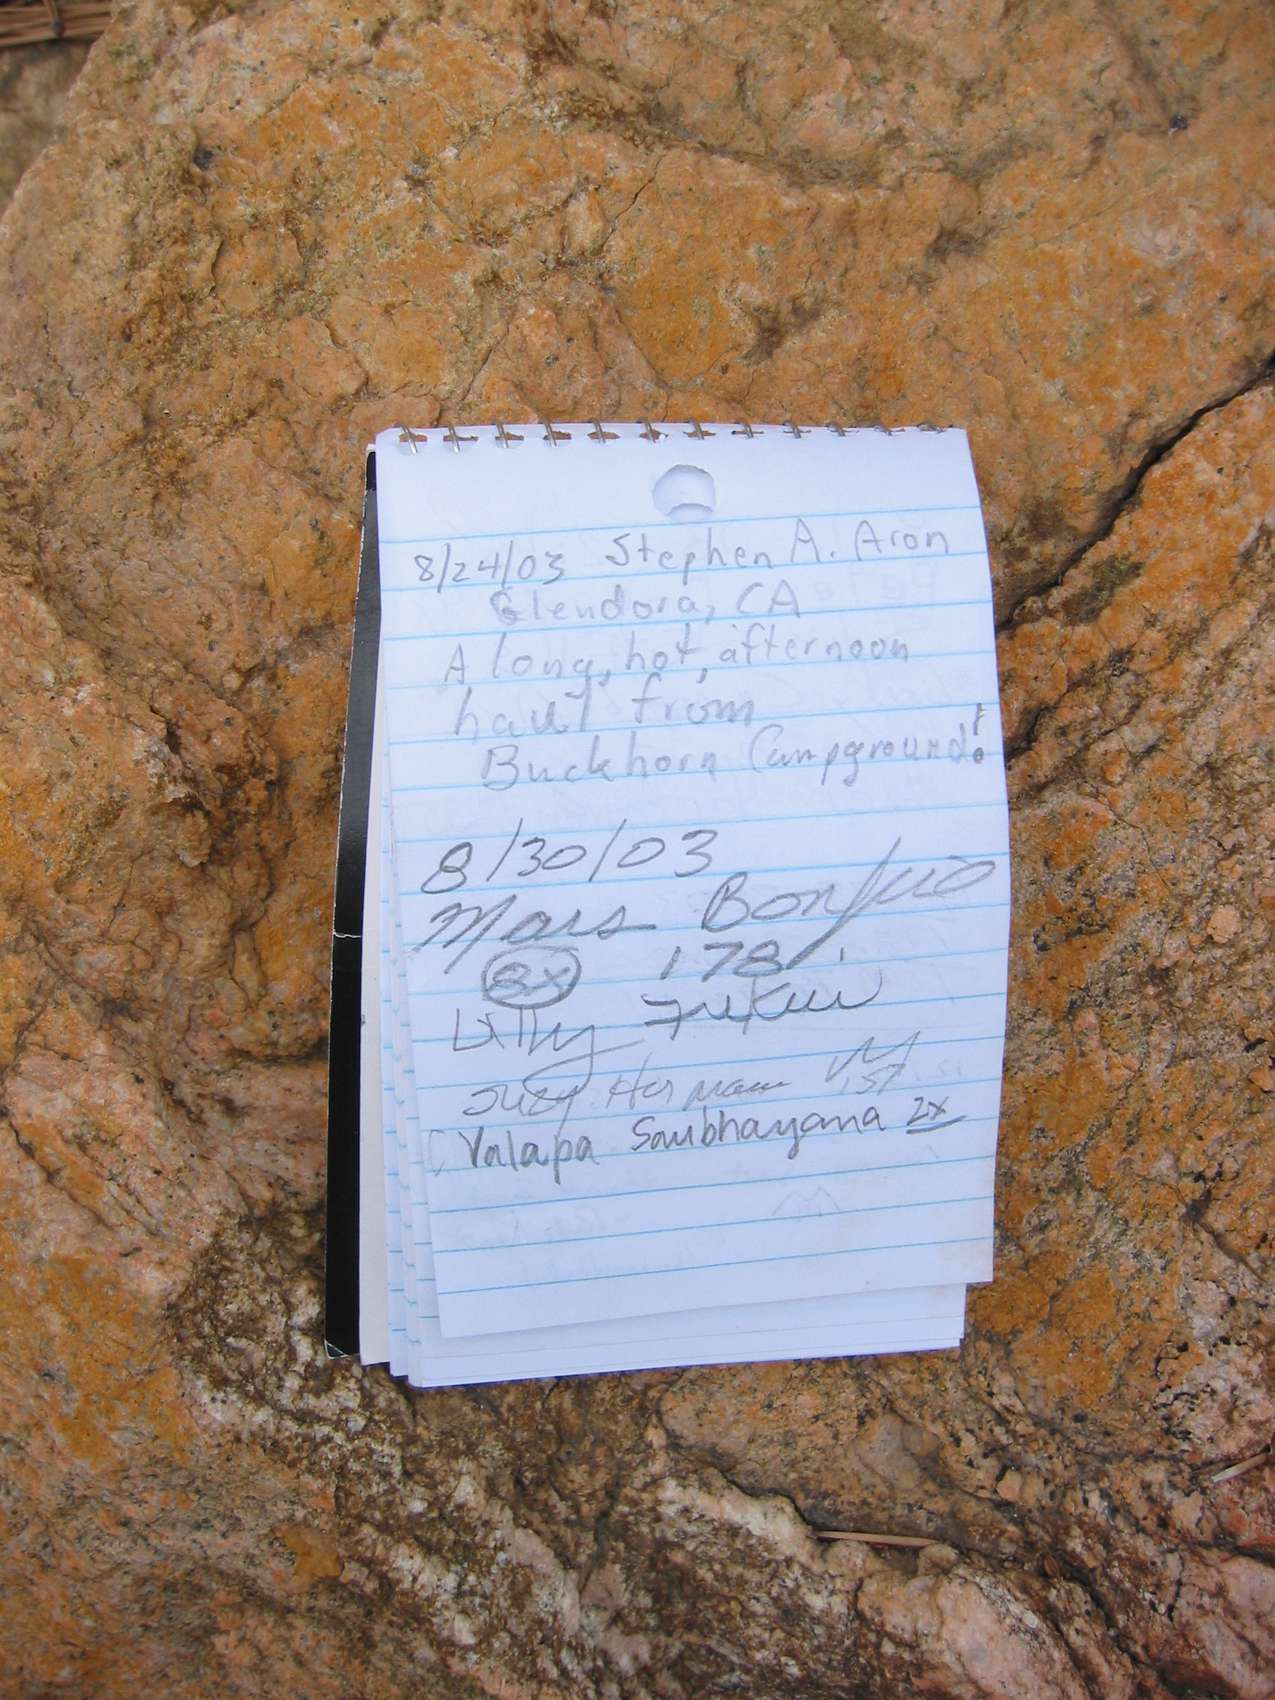 8/24/03 Stephen A. Aron
Glendora, CA
A long, hot, afternoon
haul from
Buckhorn Campground!
8/30/03
Mars Bonfire
8x 178
Lilly Fukui
Herman 1ST
Yalapa Saubhayana 2x